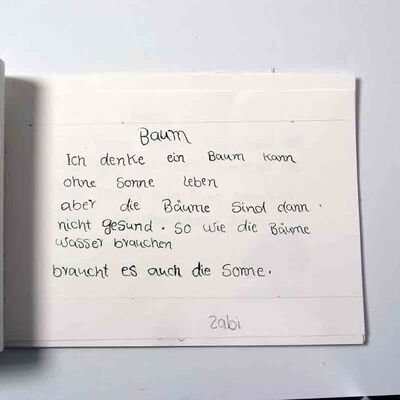 Baum
Ich denke ein Baum kann
ohne Sonne leben
aber die Bäume sind dann.
nicht gesund. So wie die Bäume
wasser brauchen
braucht es auch die Sonne.
Zabi